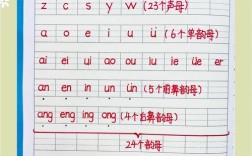 z c s y w (23个声母)
a o e i u ü (6个单韵母)
ai ei ui ao ou iu ie üe er
an en in un ün (5个前鼻韵母)
ang eng ing ong (4个后鼻韵母)
24个韵母